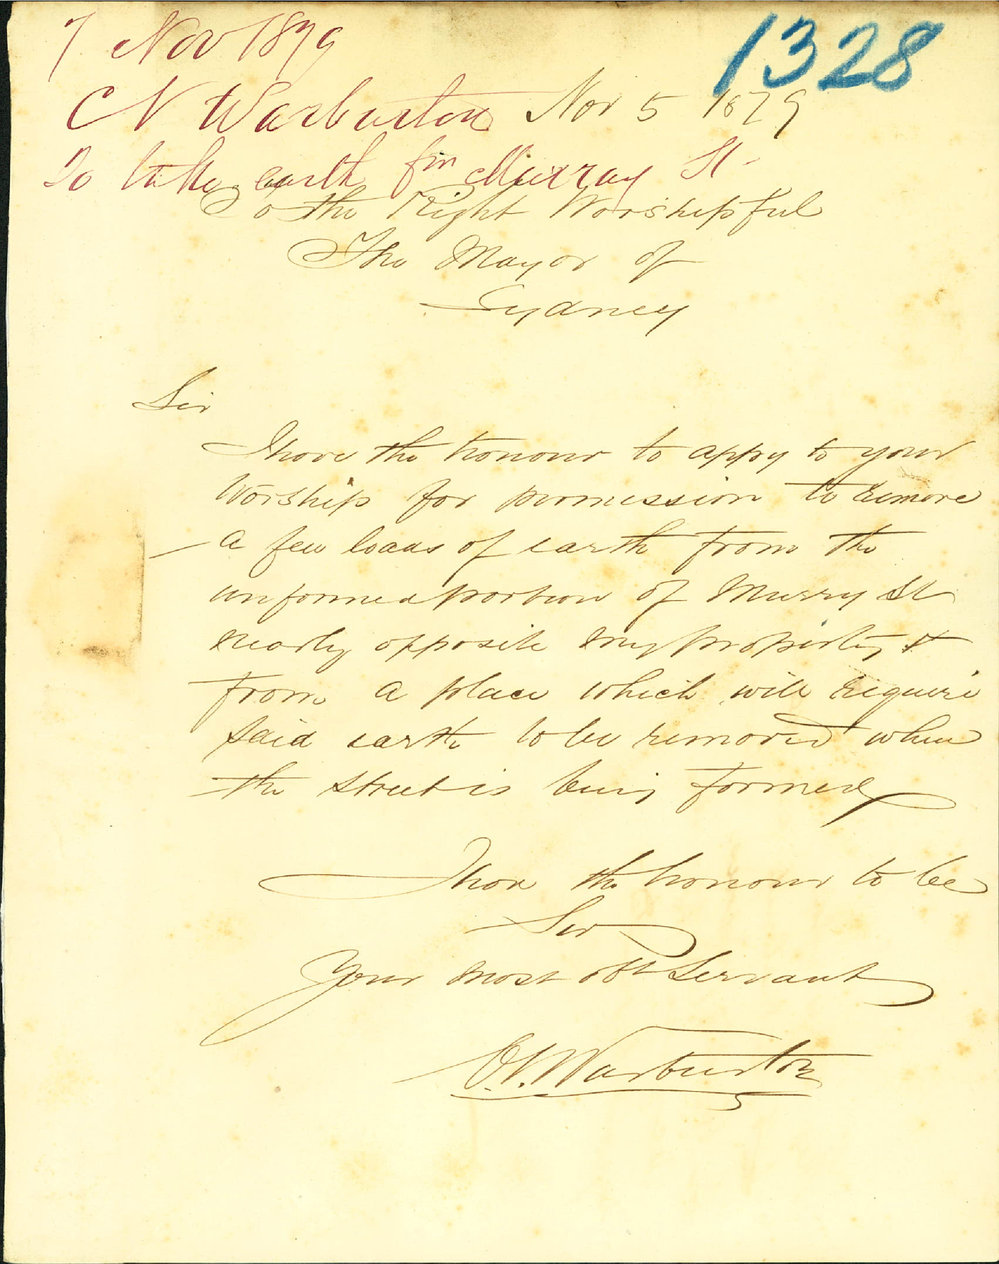 7 Nov 1879
1328
C N Warburton
Nov 5 1879
To take earth fm Murray St
To the Right Worshipful
The Mayor of
Sydney
Sir
I have the honour to appy to your
Worship for permission to remove
a few loads of earth from the
unformed portion of Murry St
nearly opposite my property &
from a place which will requeri
said earth to be removed when
the street is being formed
I have the honour to be
Sir
Your most obt Servant
C.N. Warburton